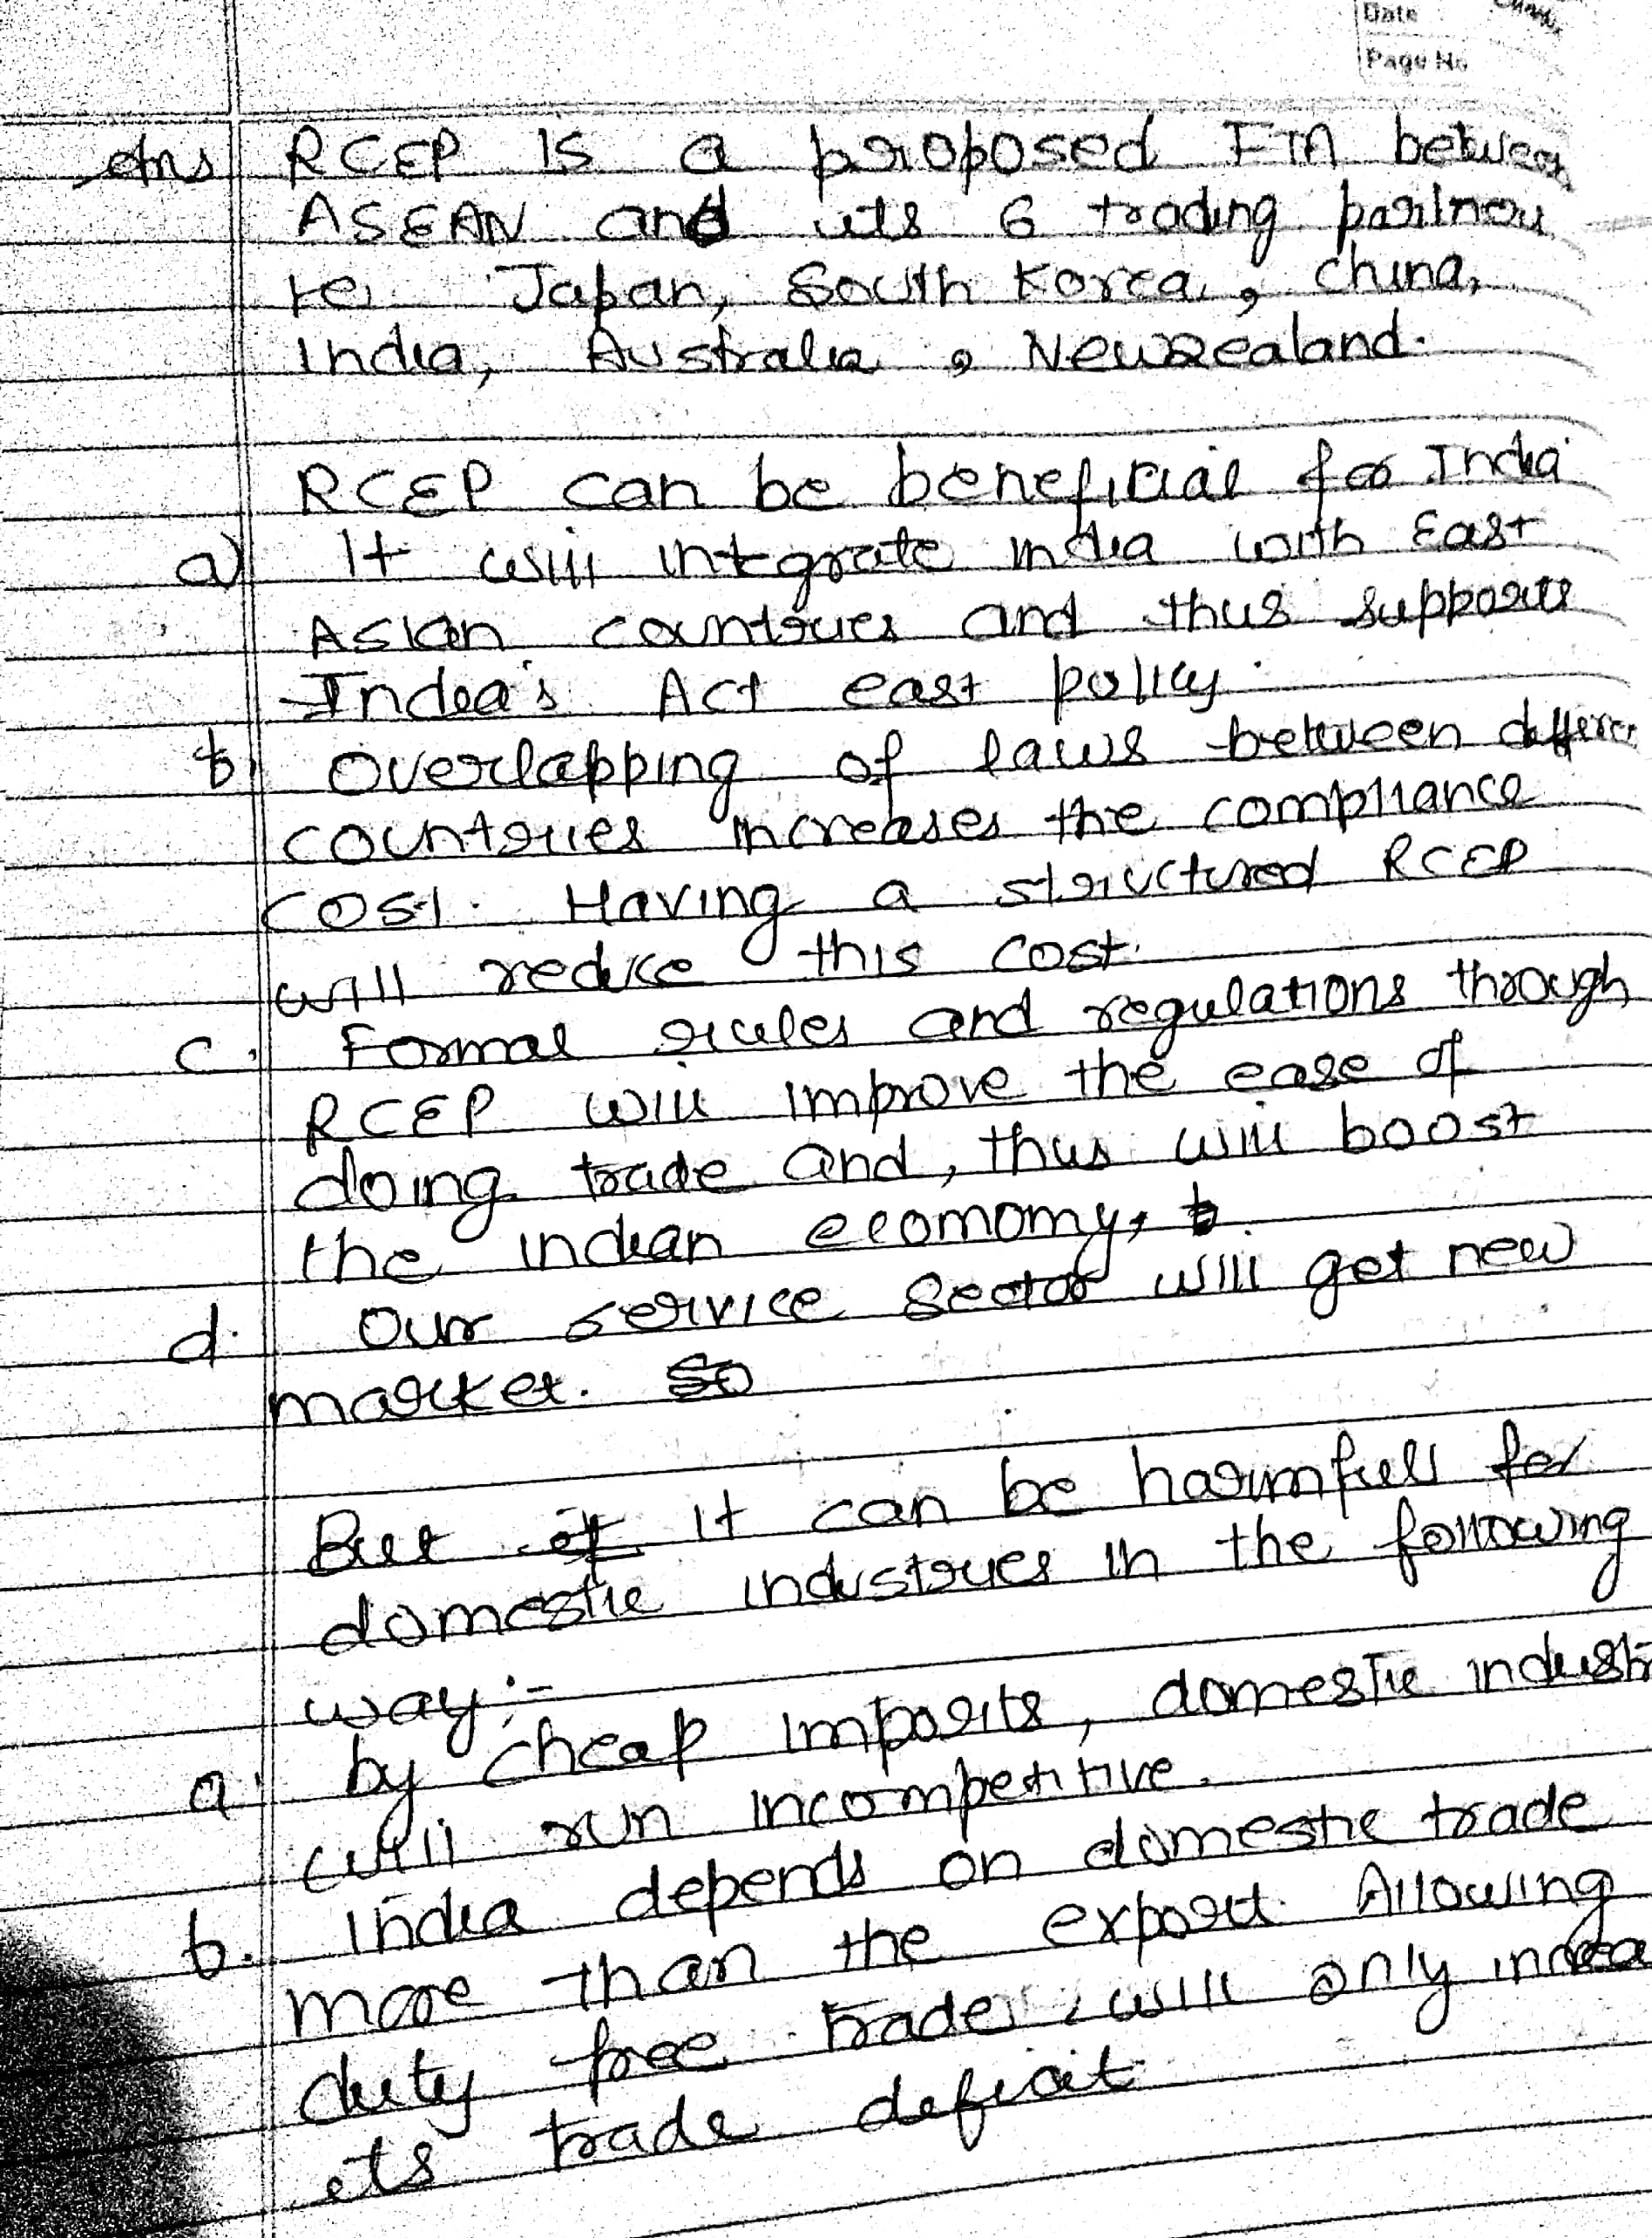 Date
Page No
Ans RCEP is a proposed FTA between
ASEAN and its 6 trading partners
ie. Japan, South Korea, China,
India, Australia, Newzealand.
RCEP can be beneficial for India
a) It will integrate india with East
Asian countries and thus supports
India's Act east policy.
b) Overlapping of laws between different
countries increases the compliance
cost. Having a structured RCEP
will reduce this cost.
c. Formal rules and regulations through
RCEP will improve the ease of
doing trade and, thus will boost
the indian ecomomy,
d. Our service sector will get new
market. So
But it can be harmfull for
domestic industries in the following
way:-
a. by cheap imports, domestic industr
will run incompetitive.
b. india depends on domestic trade
more than the export. Allowing
duty free trade, will only increa
its trade deficit